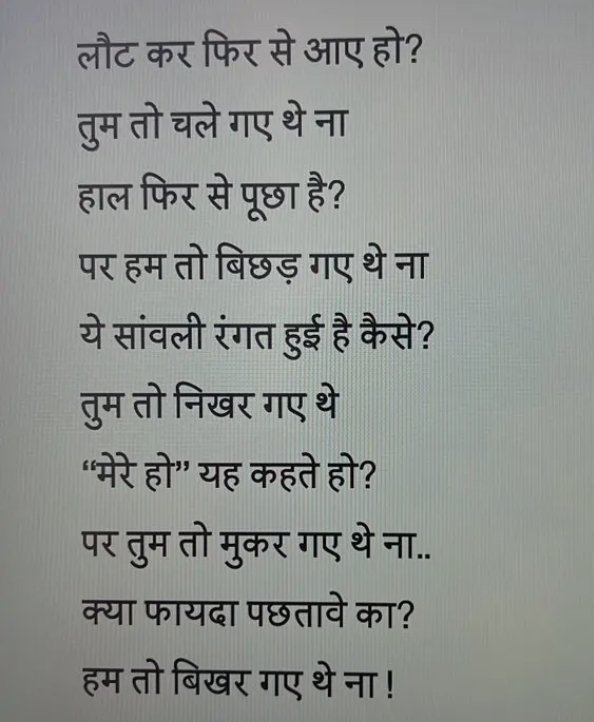 लौट कर फिर से आए हो?
तुम तो चले गए थे ना
हाल फिर से पूछा है?
पर हम तो बिछड़ गए थे ना
ये सांवली रंगत हुई है कैसे?
तुम तो निखर गए थे
“मेरे हो” यह कहते हो?
पर तुम तो मुकर गए थे ना..
क्या फायदा पछतावे का?
हम तो बिखर गए थे ना !